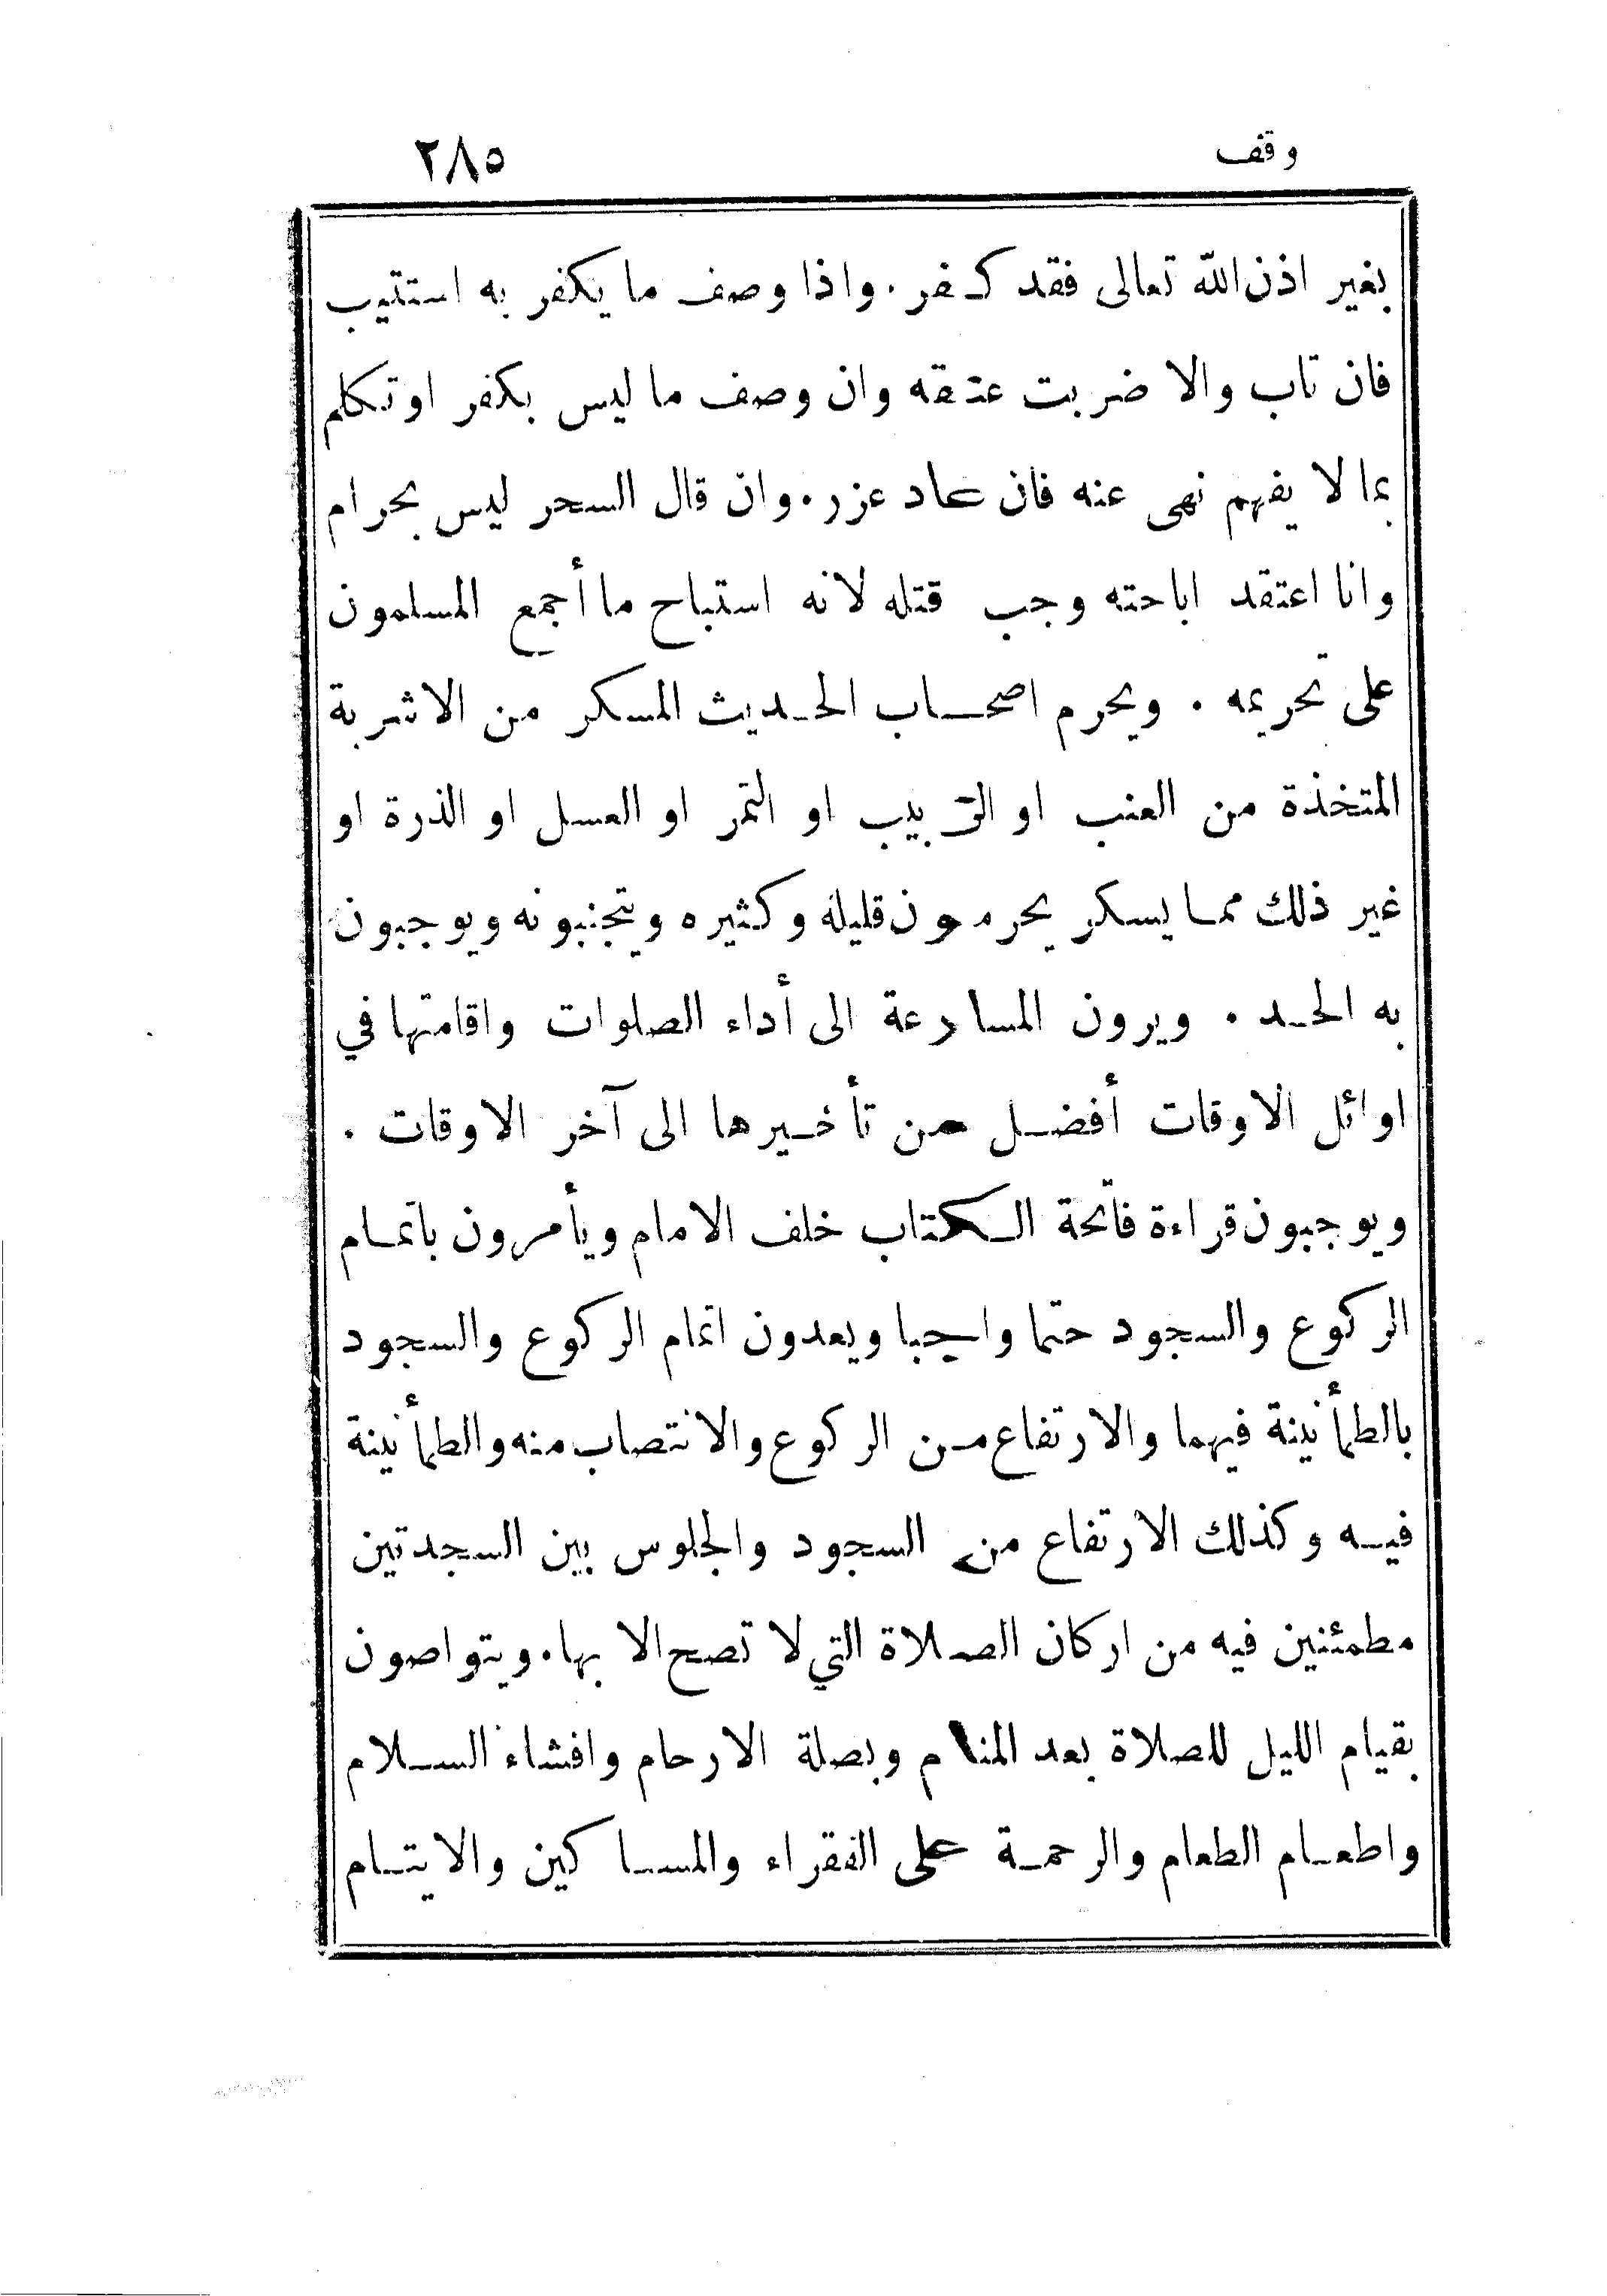 وقف ٢٨٥
بغير اذن الله تعالى فقد كفر . واذا وصف ما يكفر به استتيب
فان تاب والا ضربت عنقه وان وصف ما ليس بكفر او تكلم
بما لا يفهم نهى عنه فان عاد عزر . وان قال السحر ليس بحرام
وانا اعتقد اباحته وجب قتله لانه استباح ما أجمع المسلمون
على تحريمه . ويحرم اصحاب الحديث المسكر من الاشربة
المتخذة من العنب او الزبيب او التمر او العسل او الذرة او
غير ذلك مما يسكر يحرمون قليله وكثيره ويتجنبونه ويوجبون
به الحد . ويرون المسارعة الى أداء الصلوات واقامتها في
اوائل الاوقات أفضل من تأخيرها الى آخر الاوقات .
ويوجبون قراءة فاتحة الكتاب خلف الامام ويأمرون باتمام
الركوع والسجود حتما واجبا ويعدون اتمام الركوع والسجود
بالطمأنينة فيهما والارتفاع من الركوع والانتصاب منه والطمأنينة
فيه وكذلك الارتفاع من السجود والجلوس بين السجدتين
مطمئنين فيه من اركان الصلاة التي لا تصح الا بها . ويتواصون
بقيام الليل للصلاة بعد المنام وبصلة الارحام وافشاء السلام
واطعام الطعام والرحمة على الفقراء والمساكين والايتام